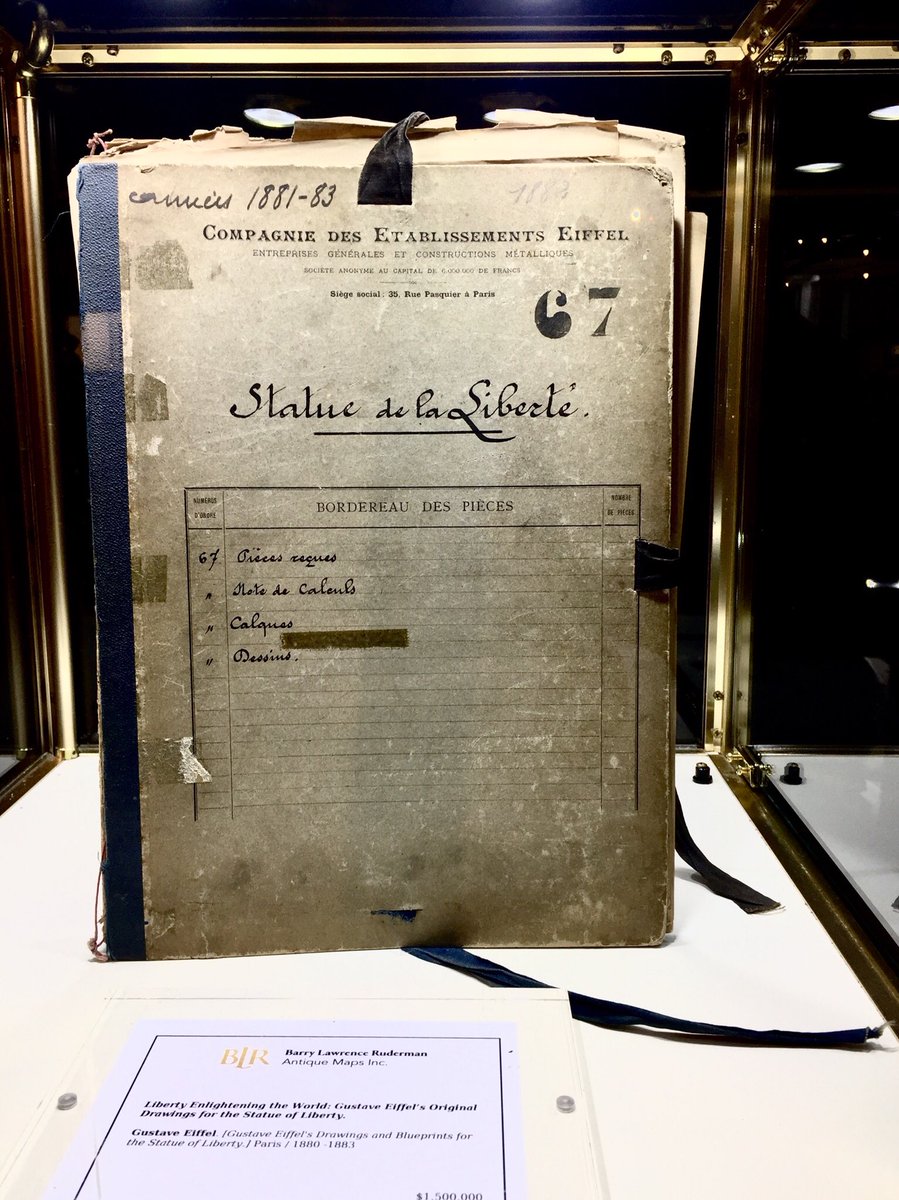 années 1881-83
1883
COMPAGNIE DES ETABLISSEMENTS EIFFEL
ENTREPRISES GÉNÉRALES ET CONSTRUCTIONS MÉTALLIQUES
SOCIÉTÉ ANONYME AU CAPITAL DE 6.000.000 DE FRANCS
Siège social: 35, Rue Pasquier à Paris
67
Statue de la Liberté.
NUMÉROS D'ORDRE
BORDEREAU DES PIÈCES
NOMBRE DE PIÈCES
67 Pièces reçues
" Note de Calculs
" Calques
" Dessins.
BLR
Barry Lawrence Ruderman
Antique Maps Inc.
Liberty Enlightening the World: Gustave Eiffel's Original
Drawings for the Statue of Liberty.
Gustave Eiffel. [Gustave Eiffel's Drawings and Blueprints for
the Statue of Liberty.] Paris / 1880 -1883
$1,500,000